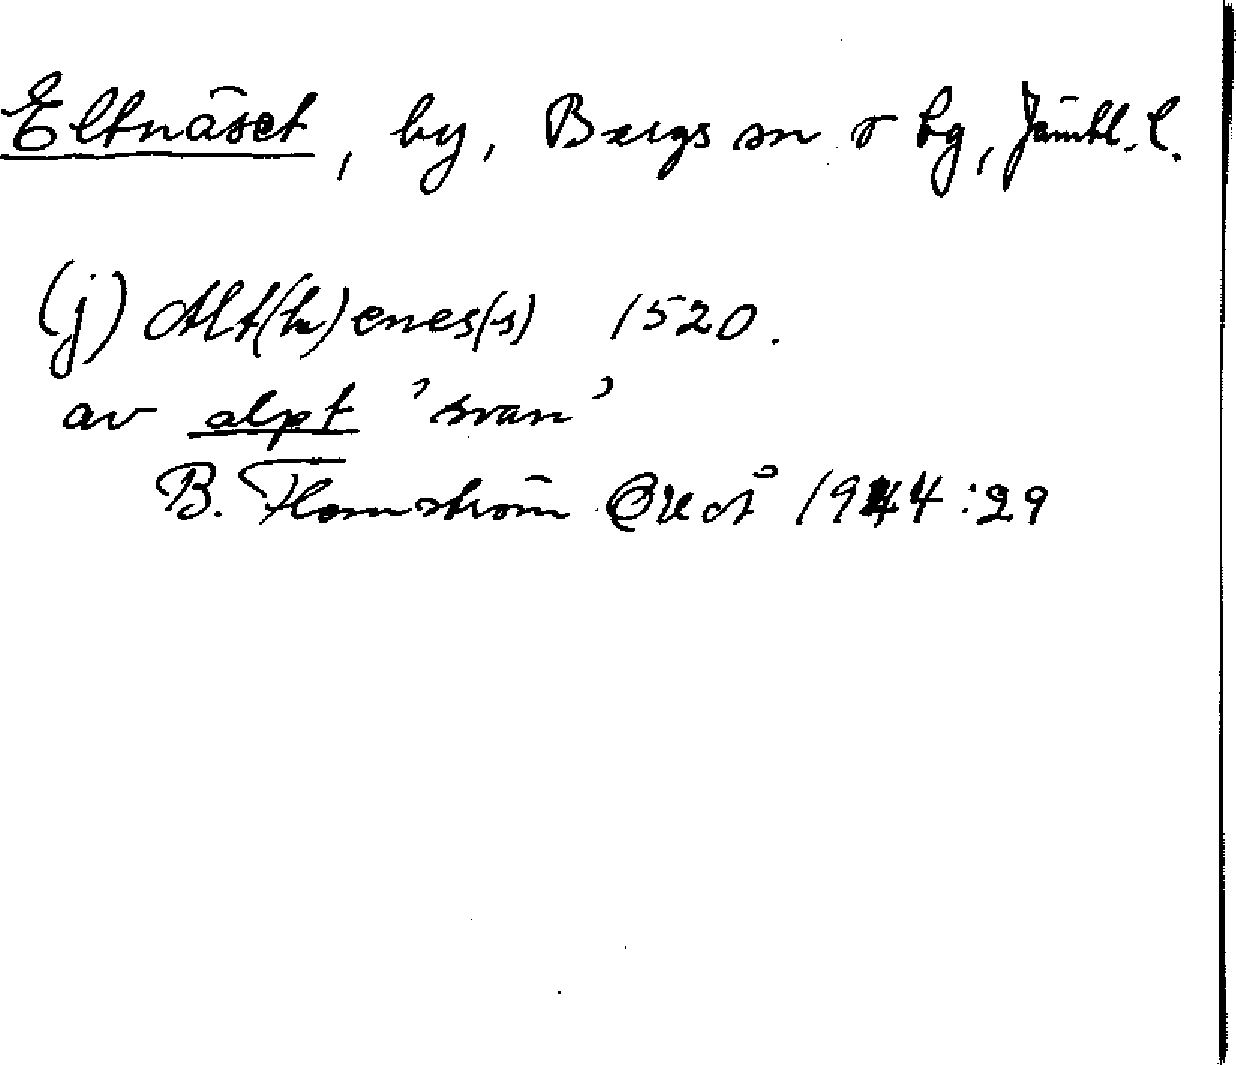 Eltnäset, by, Bergs sn o tg, Jämtl. l.
(j) Alt(h)enes(s) 1520.
av alpt 'svan'
B. Flemström OUOÅ 1944:29